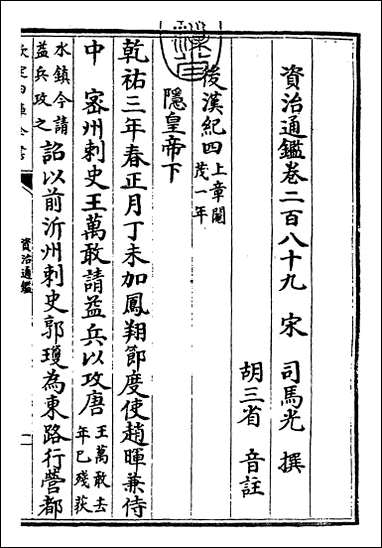 資治通鑑卷二百八十九　宋　司馬光　撰
胡三省　音註
後漢紀四 上章閹茂一年
隱皇帝下
乾祐三年春正月丁未加鳳翔節度使趙暉兼侍
中　密州刺史王萬敢請益兵以攻唐 王萬敢去年已殘荻
水鎮今請益兵攻之 詔以前沂州刺史郭瓊為東路行營都
資治通鑑